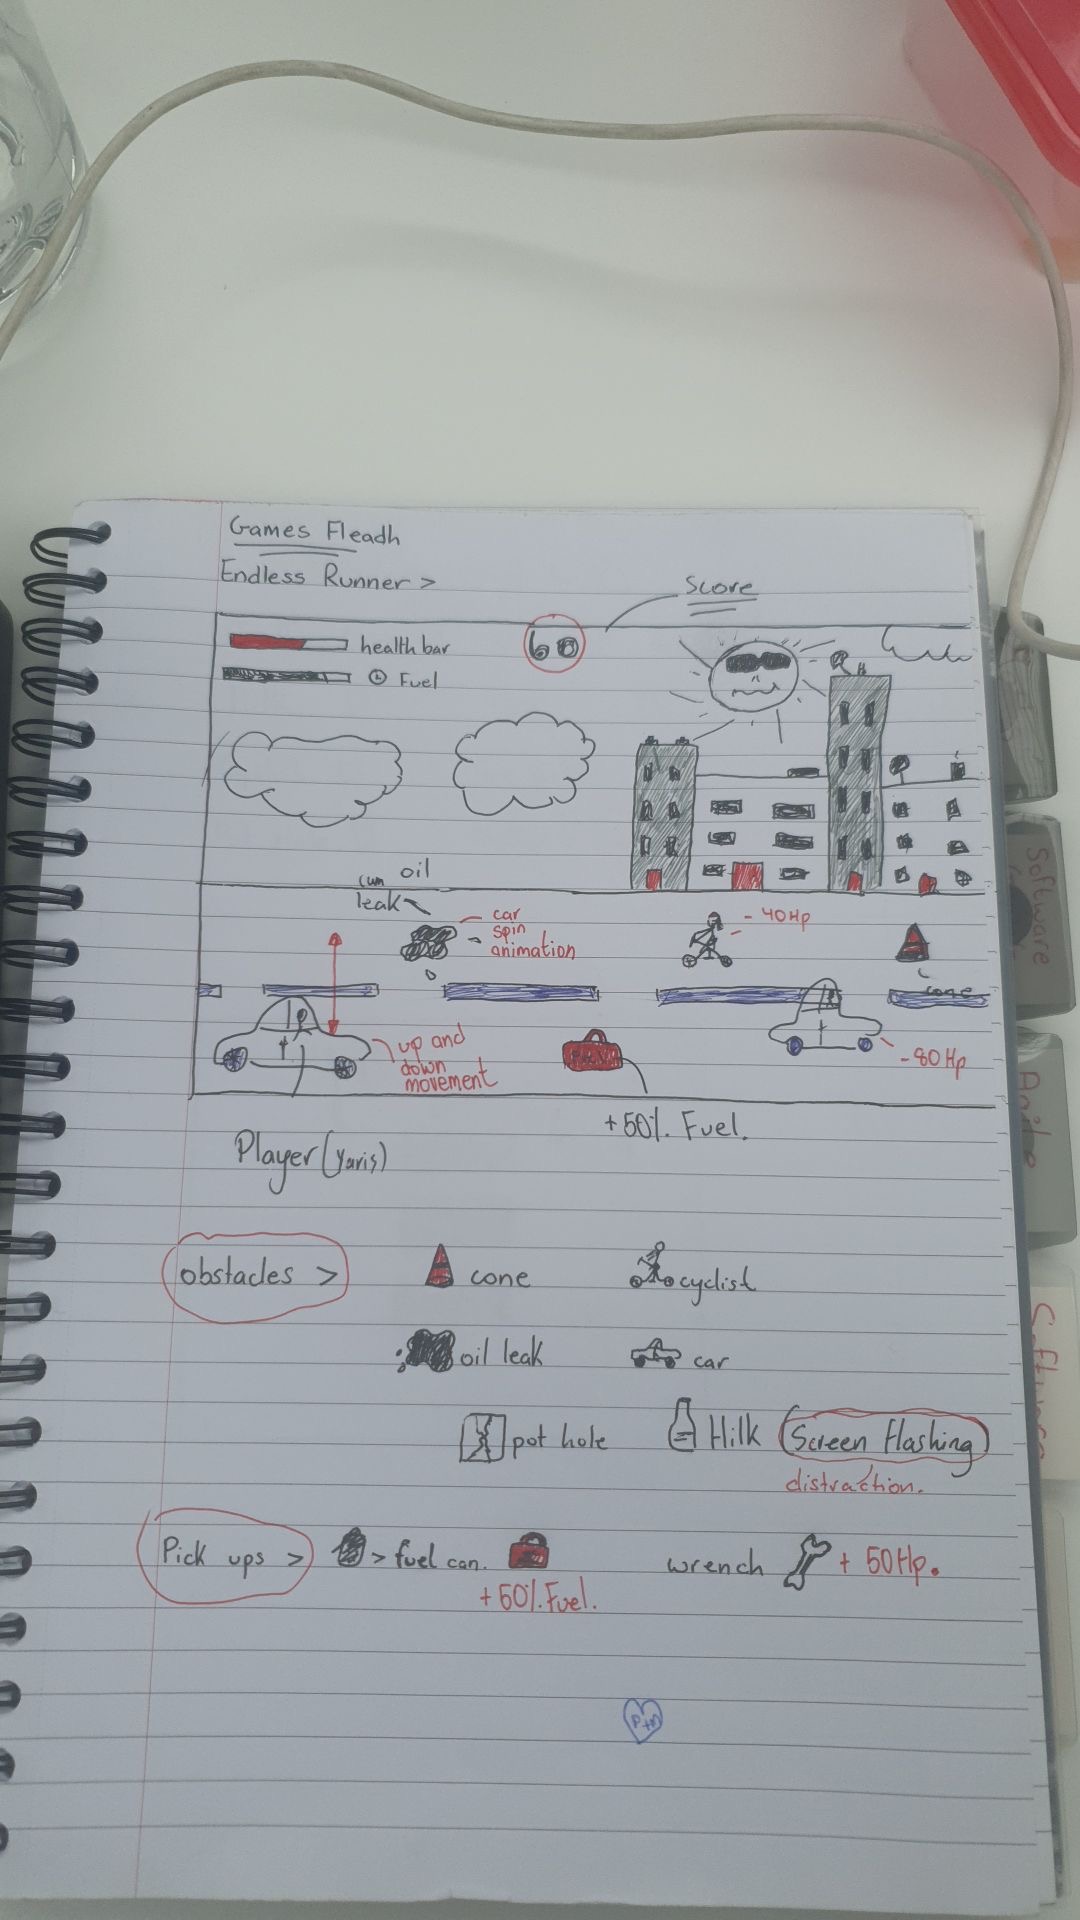 Games Fleadh
Endless Runner >
Score
health bar
60
Fuel
oil
leak
car
spin
animation
- 40Hp
cone
up and
down
movement
- 80Hp
+50% Fuel.
Player (Yaris)
obstacles >
cone
cyclist
oil leak
car
pot hole
Milk (Screen flashing)
distraction.
Pick ups >
> fuel can.
+50% Fuel.
wrench
+ 50Hp.
P+M
Software